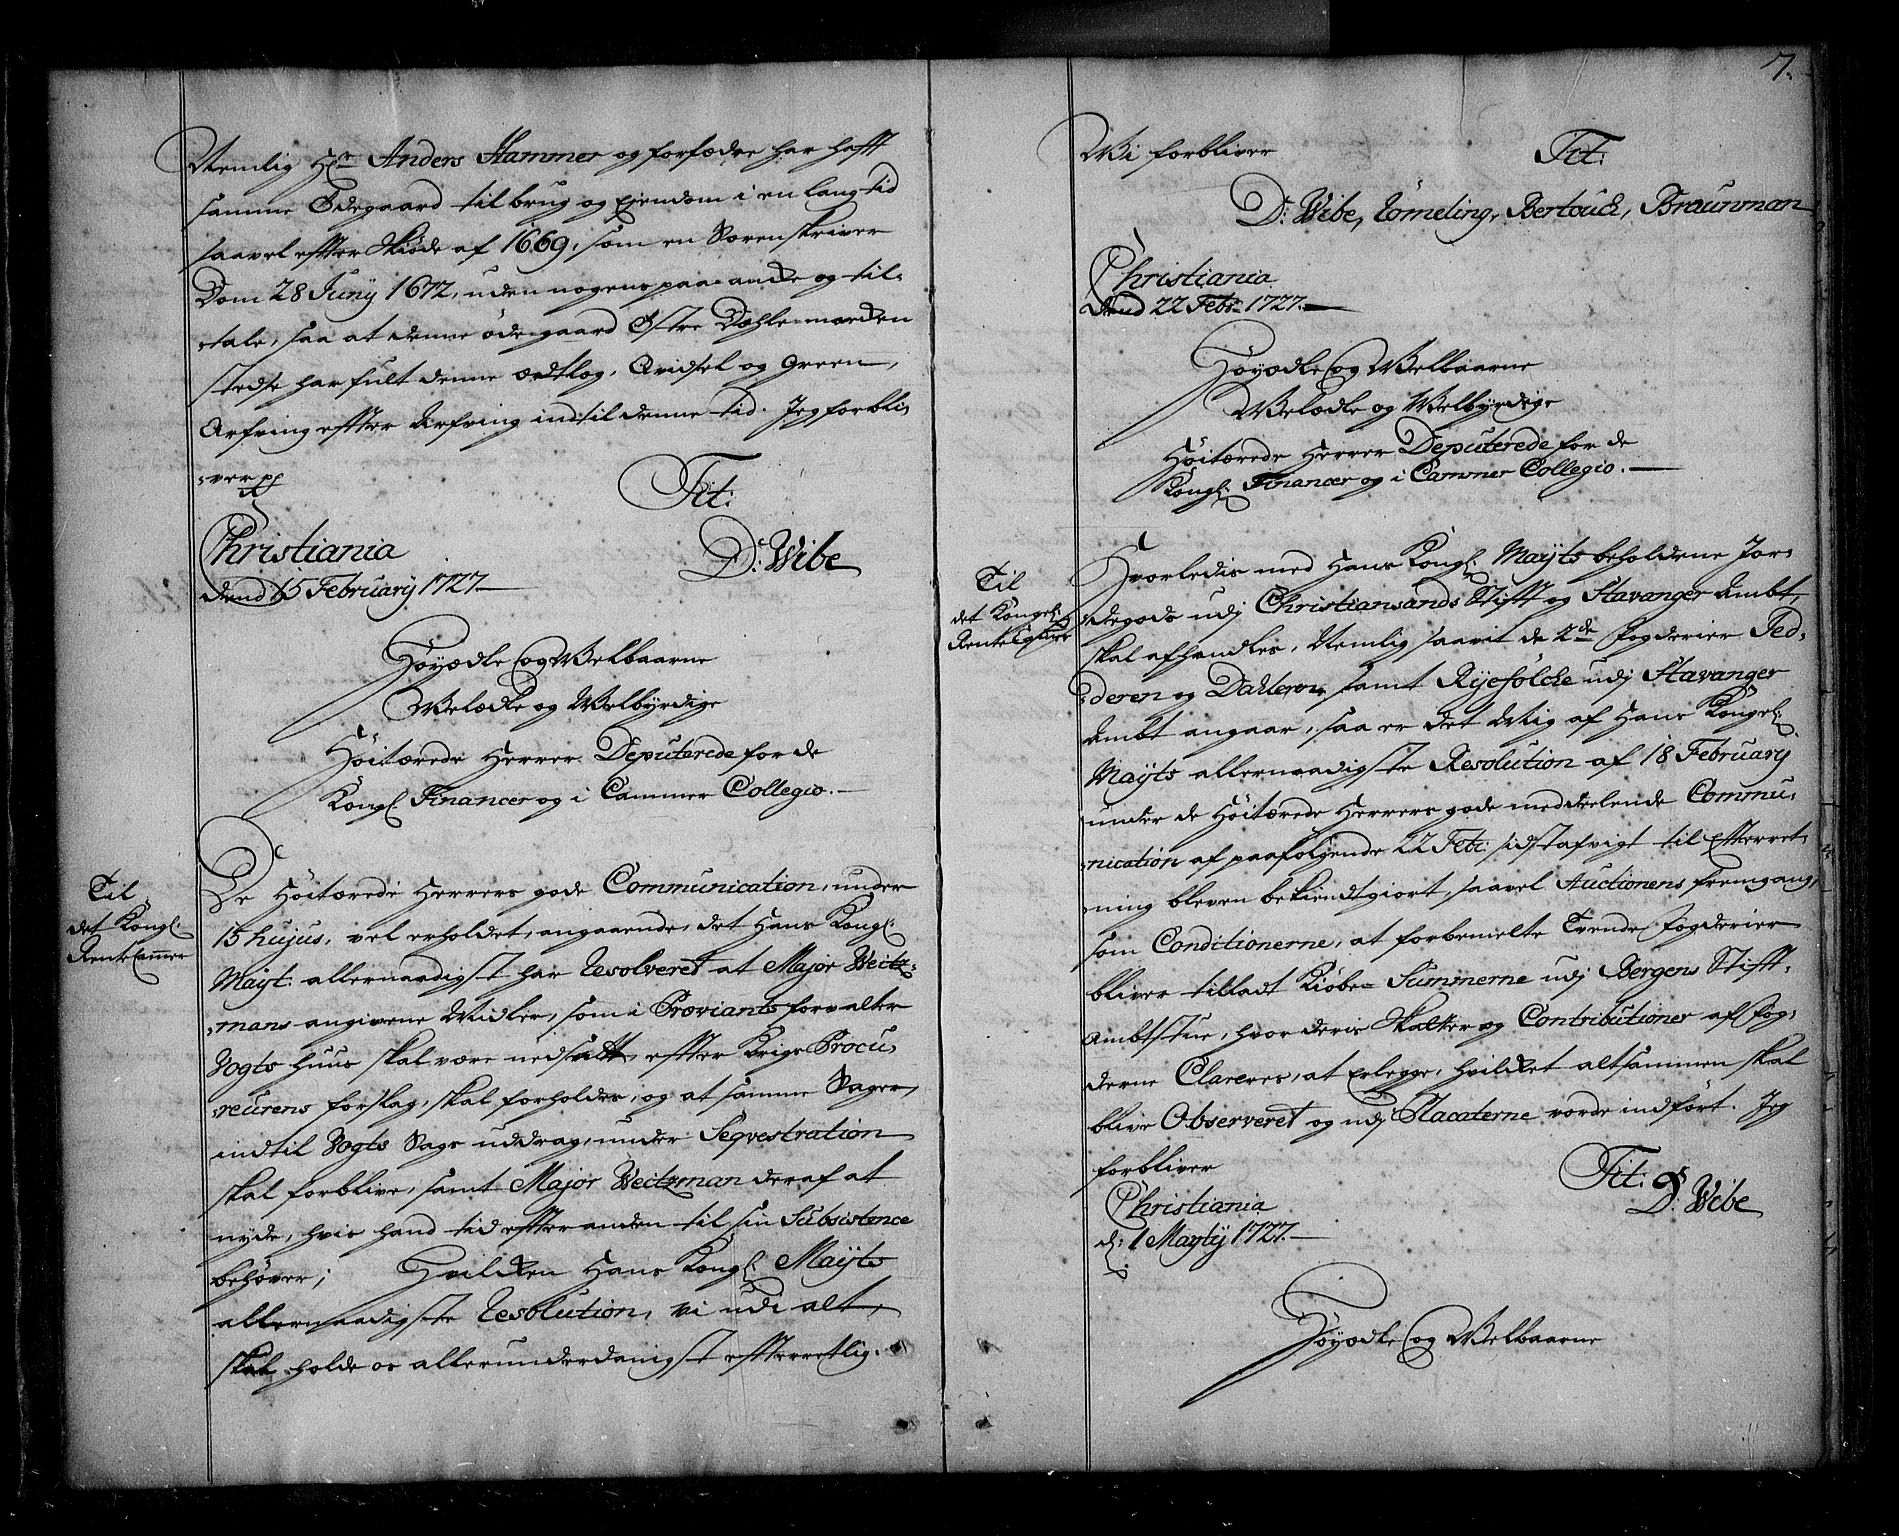 Nemlig Hr Anders Hammer og forfædre har hafft
samme Ødegaard til brug og Ejendom i en lang tid
saavel effter Skiøde af 1669, som en Sorenskriver
Dom 28 Junÿ 1672, uden nogens paaanke og til-
-tale, saa at denne ødegaard Østre Dæhlemarken
stedse har fult denne ædtlog, Qvidsel og Green,
Arfving effter Arfving indtil denne tid. Jeg forbli-
-ver pp
Tit:
Christiania
dend 15 February 1727.
D: Wibe
Høyædle og Welbaarne
Welædle og Welbÿrdige
Høitærede Herrer Deputerede for de
Kongl: Financer og i Cammer Collegio.
Til
det Kongl:
RenteCammer
De Høitærede Herrers gode Communication, under
15 hujus, vel erholdet, angaaende, det Hans Kongl:
Maÿt: allernaadigst har Resolveret at Major Weitz-
-mans angivene Midler, som i Proviantsforvalter
Vogts huus skal være nedsatt, effter Krigs Procu-
-reurens forslag, skal forholdes, og at samme Sager,
indtil Vogts Sags uddrag, under Seqvestration
skal forblive, samt Major Weitzman deraf at
nyde, hvis hand tid effter anden til sin Subsistence
behøver; Hvilken Hans Kongl: Maÿts
allernaadigste Resolution, vi udi alt,
skal holde os allerunderdanigst effterretlig.
7.
Wi forbliver
Tit:
D: Wibe, Tømeling, Bertouch, Braunman
Christiania
dend 22 Febr: 1727.
Høyædle og Welbaarne
Welædle og Welbÿrdige
Høitærede Herrer Deputerede for de
Kongl: Financer og i Cammer Collegio.
Til
det Kongel:
RenteCammer
Hvorledis med Hans Kongl: Maÿts beholdene Jor-
-degods udj Christiansands Stifft og Stavanger Ambt,
skal afhandles, Nemlig saavit de 2de Fogderier Jed-
-deren og Dahlerne, samt Rÿefølcke udj Stavanger
Ambt angaar, saa er det Mig af Hans Kongel:
Maÿts allernaadigste Resolution af 18 February
under de Høitærede Herrers gode meddeelende Commu-
-nication af paafølgende 22 Febr: sidst afvigt til Efterret-
-ning bleven bekiendtgiort, saavel Auctionens fremgang,
som Conditionerne, at forbemelte Tvende Fogderier
bliver tilladt Kiøbe-Summerne udj Bergens Stifft-
Ambtstue, hvor deris Skatter og Contributioner af Fog-
derne Clareres, at Erlegge, hvilket altsammen skal
blive Observeret og udj Placaterne vorde indført. Jeg
forbliver
Tit:
D: Wibe
Christiania
d: 1 Martÿ 1727.
Høyædle og Welbaarne